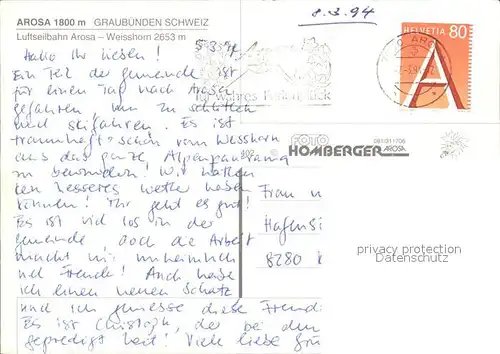 8.3.94
AROSA 1800 m GRAUBÜNDEN SCHWEIZ
Luftseilbahn Arosa – Weisshorn 2653 m
HELVETIA 80
A
Hallo Ihr Lieben!
Ein Teil der Gemeinde ist
für einen Tag nach Arosa
gefahren um zu schlitteln
und skifahren. Es ist
traumhaft schön vom Weisshorn
aus das ganze Alpenpanorama
zu bewundern! Wir hätten
kein besseres Wetter haben
können! Mir geht es gut!
Es ist viel los in der
Gemeinde, doch die Arbeit
macht mir unheimlich
viel Freude! Auch habe
ich einen neuen Schatz
und ich geniesse diese
Es ist Christoph, der bei dem
gepredigt hat! Viele liebe
FOTO
HOMBERGER
AROSA
081/311706
Frau
8280
privacy protection
Datenschutz